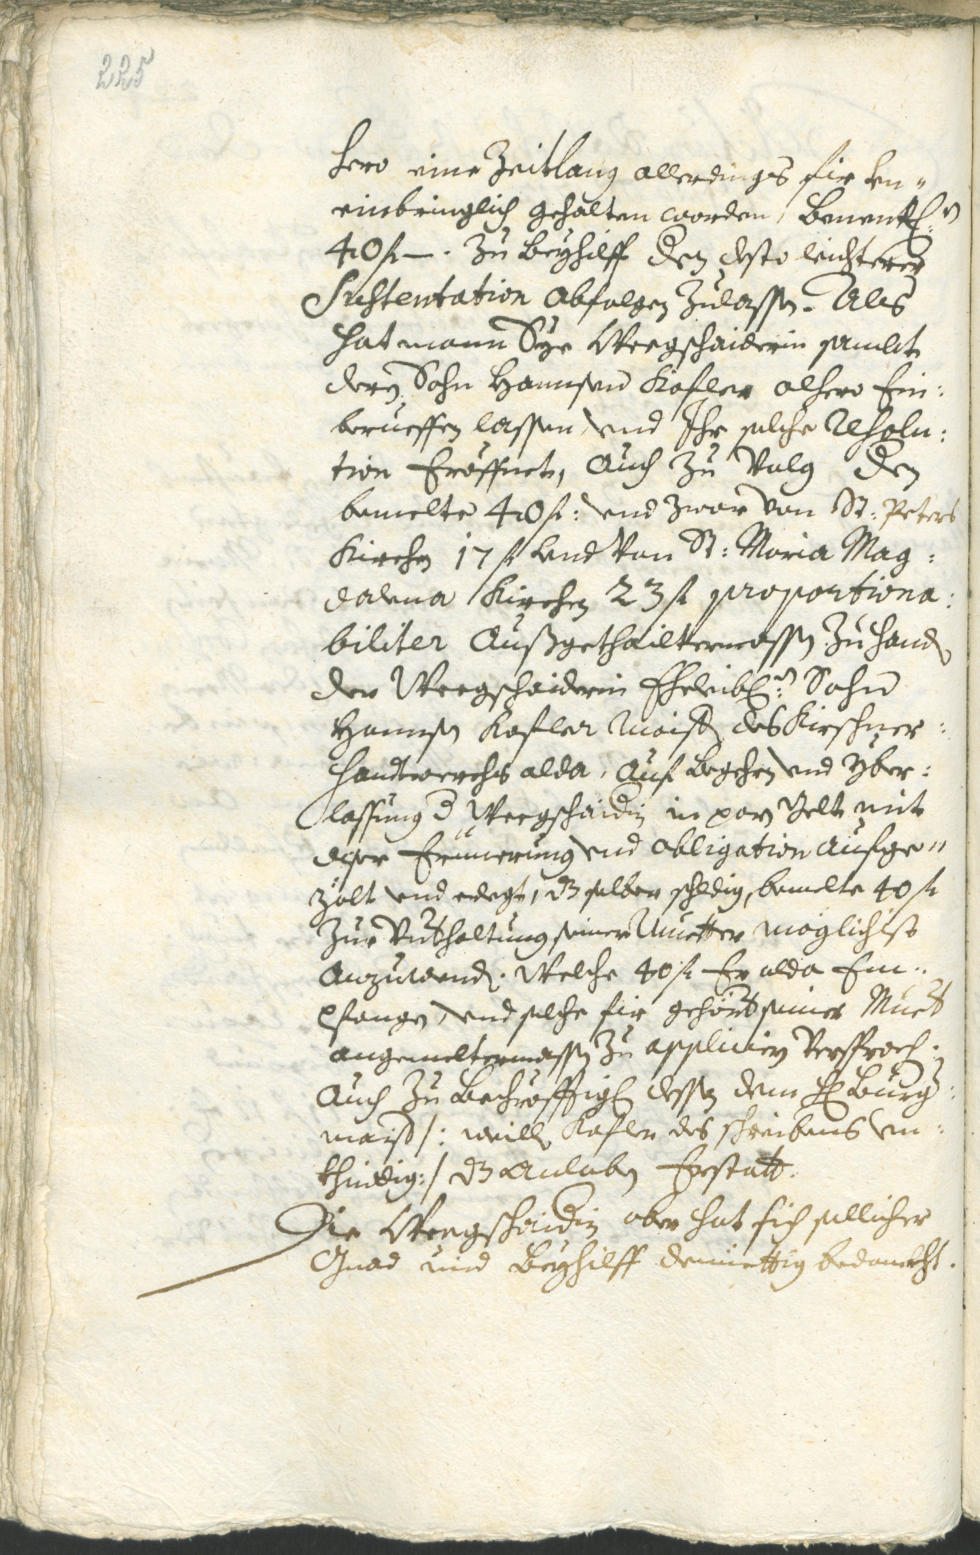 225
hero eine Zeitlang allerdings fir un„
einbringlich gehalten worden, benent
40 fl —. zu Beyhilff den desto leichterer
Sustentation abfolgen zulassen. Als
hat mann Sye Weegschaiderin sambt
dern Sohn Hannsen Kofler alhero Ein:
berueffen lassen, und Ihr solche Resolu:
tion Eröffnet, Auch zu Volg den
bemelte 40 fl: und zwar von St: Peters
Kirchen 17 fl und von St: Maria Mag:
dalena Kirchen 23 fl proportiona:
biliter Außgethailtermassen zu Handen
der Weegschaiderin Eheleibl: Sohn
Hannsen Kofler Maister des Kirschner:
Handtwerchs alda, Auf Begehren und Yber:
lassung d Weegschaidin in par Gelt mit
diser Erinnerung und obligation Aufge„
zölt und erlegt, dz selber schldig, bemelte 40 fl
zur Unthaltung seiner Muetter möglichist
Anzuwenden. Welche 40 fl Er alda Em:
pfangen, und solche fir gehört seiner Muet
angemeltermassen zu appliciern versproch.
Auch zu Bechröfftig dessen dem H Burg:
maister /: weillen Kofler des schreibens un:
khindig :/ dz Anloben Erstatt.
Die Weegschaidin aber hat sich sollicher
Gnad und Beyhilff demiettig bedanckht.